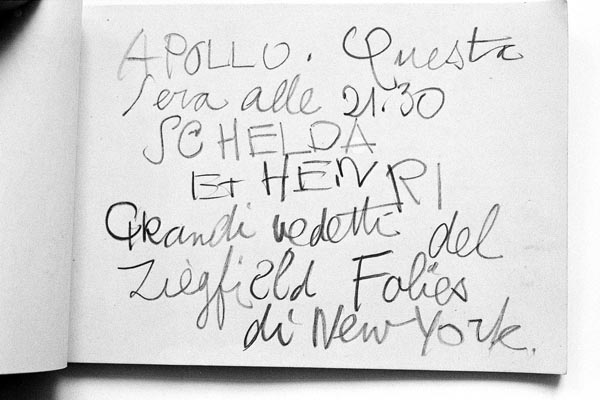 APOLLO. Questa
sera alle 21.30
SCHELDA
Et HENRI
GRandi vedetti del
Ziègfield Folies
di New York.